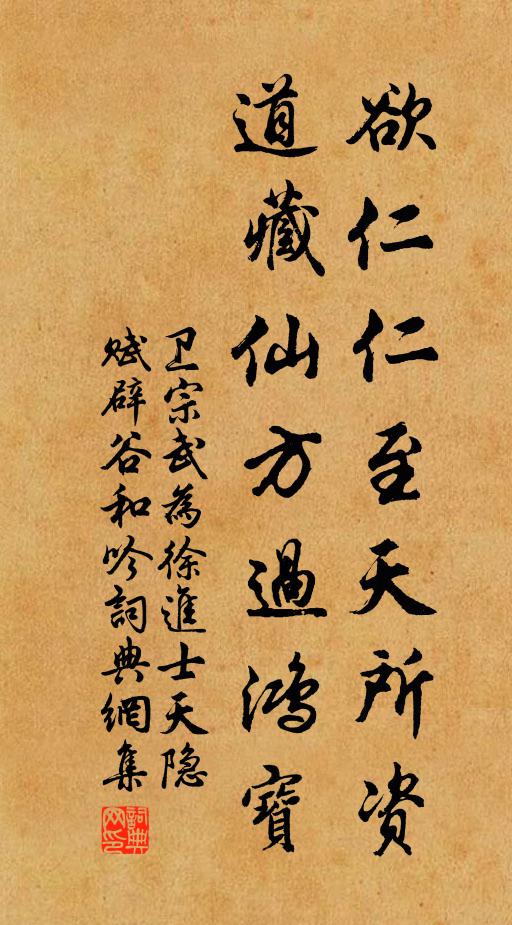 欲仁仁至天所资
道藏仙方過鴻寶
卫宗武為徐進士天隐
赋辟谷和吟詞典網集
詞典网印